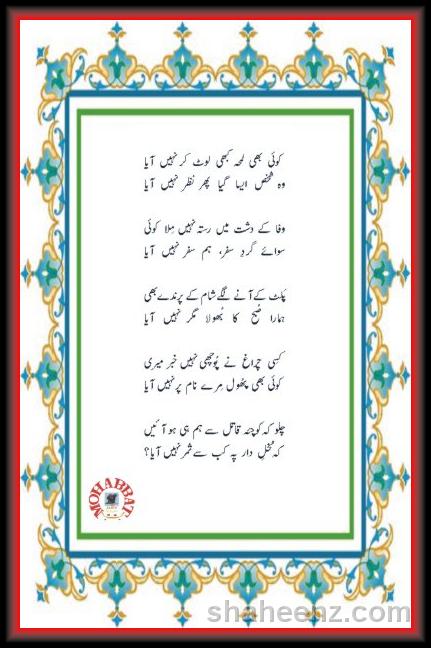 کوئی بھی لمحہ کبھی لوٹ کر نہیں آیا
وہ شخص ایسا گیا پھر نظر نہیں آیا
وفا کے دشت میں رستہ نہیں مِلا کوئی
سوائے گردِ سفر، ہم سفر نہیں آیا
پَلٹ کے آنے لگے شام کے پرندے بھی
ہمارا صُبح کا بُھولا مگر نہیں آیا
کسی چراغ نے پُوچھی نہیں خبر میری
کوئی بھی پھول مِرے نام پر نہیں آیا
چلو کہ کوچۂ قاتل سے ہم ہی ہو آئیں
کہ نخلِ دار پہ کب سے ثمر نہیں آیا؟
MOHABBAT
shaheenz.com